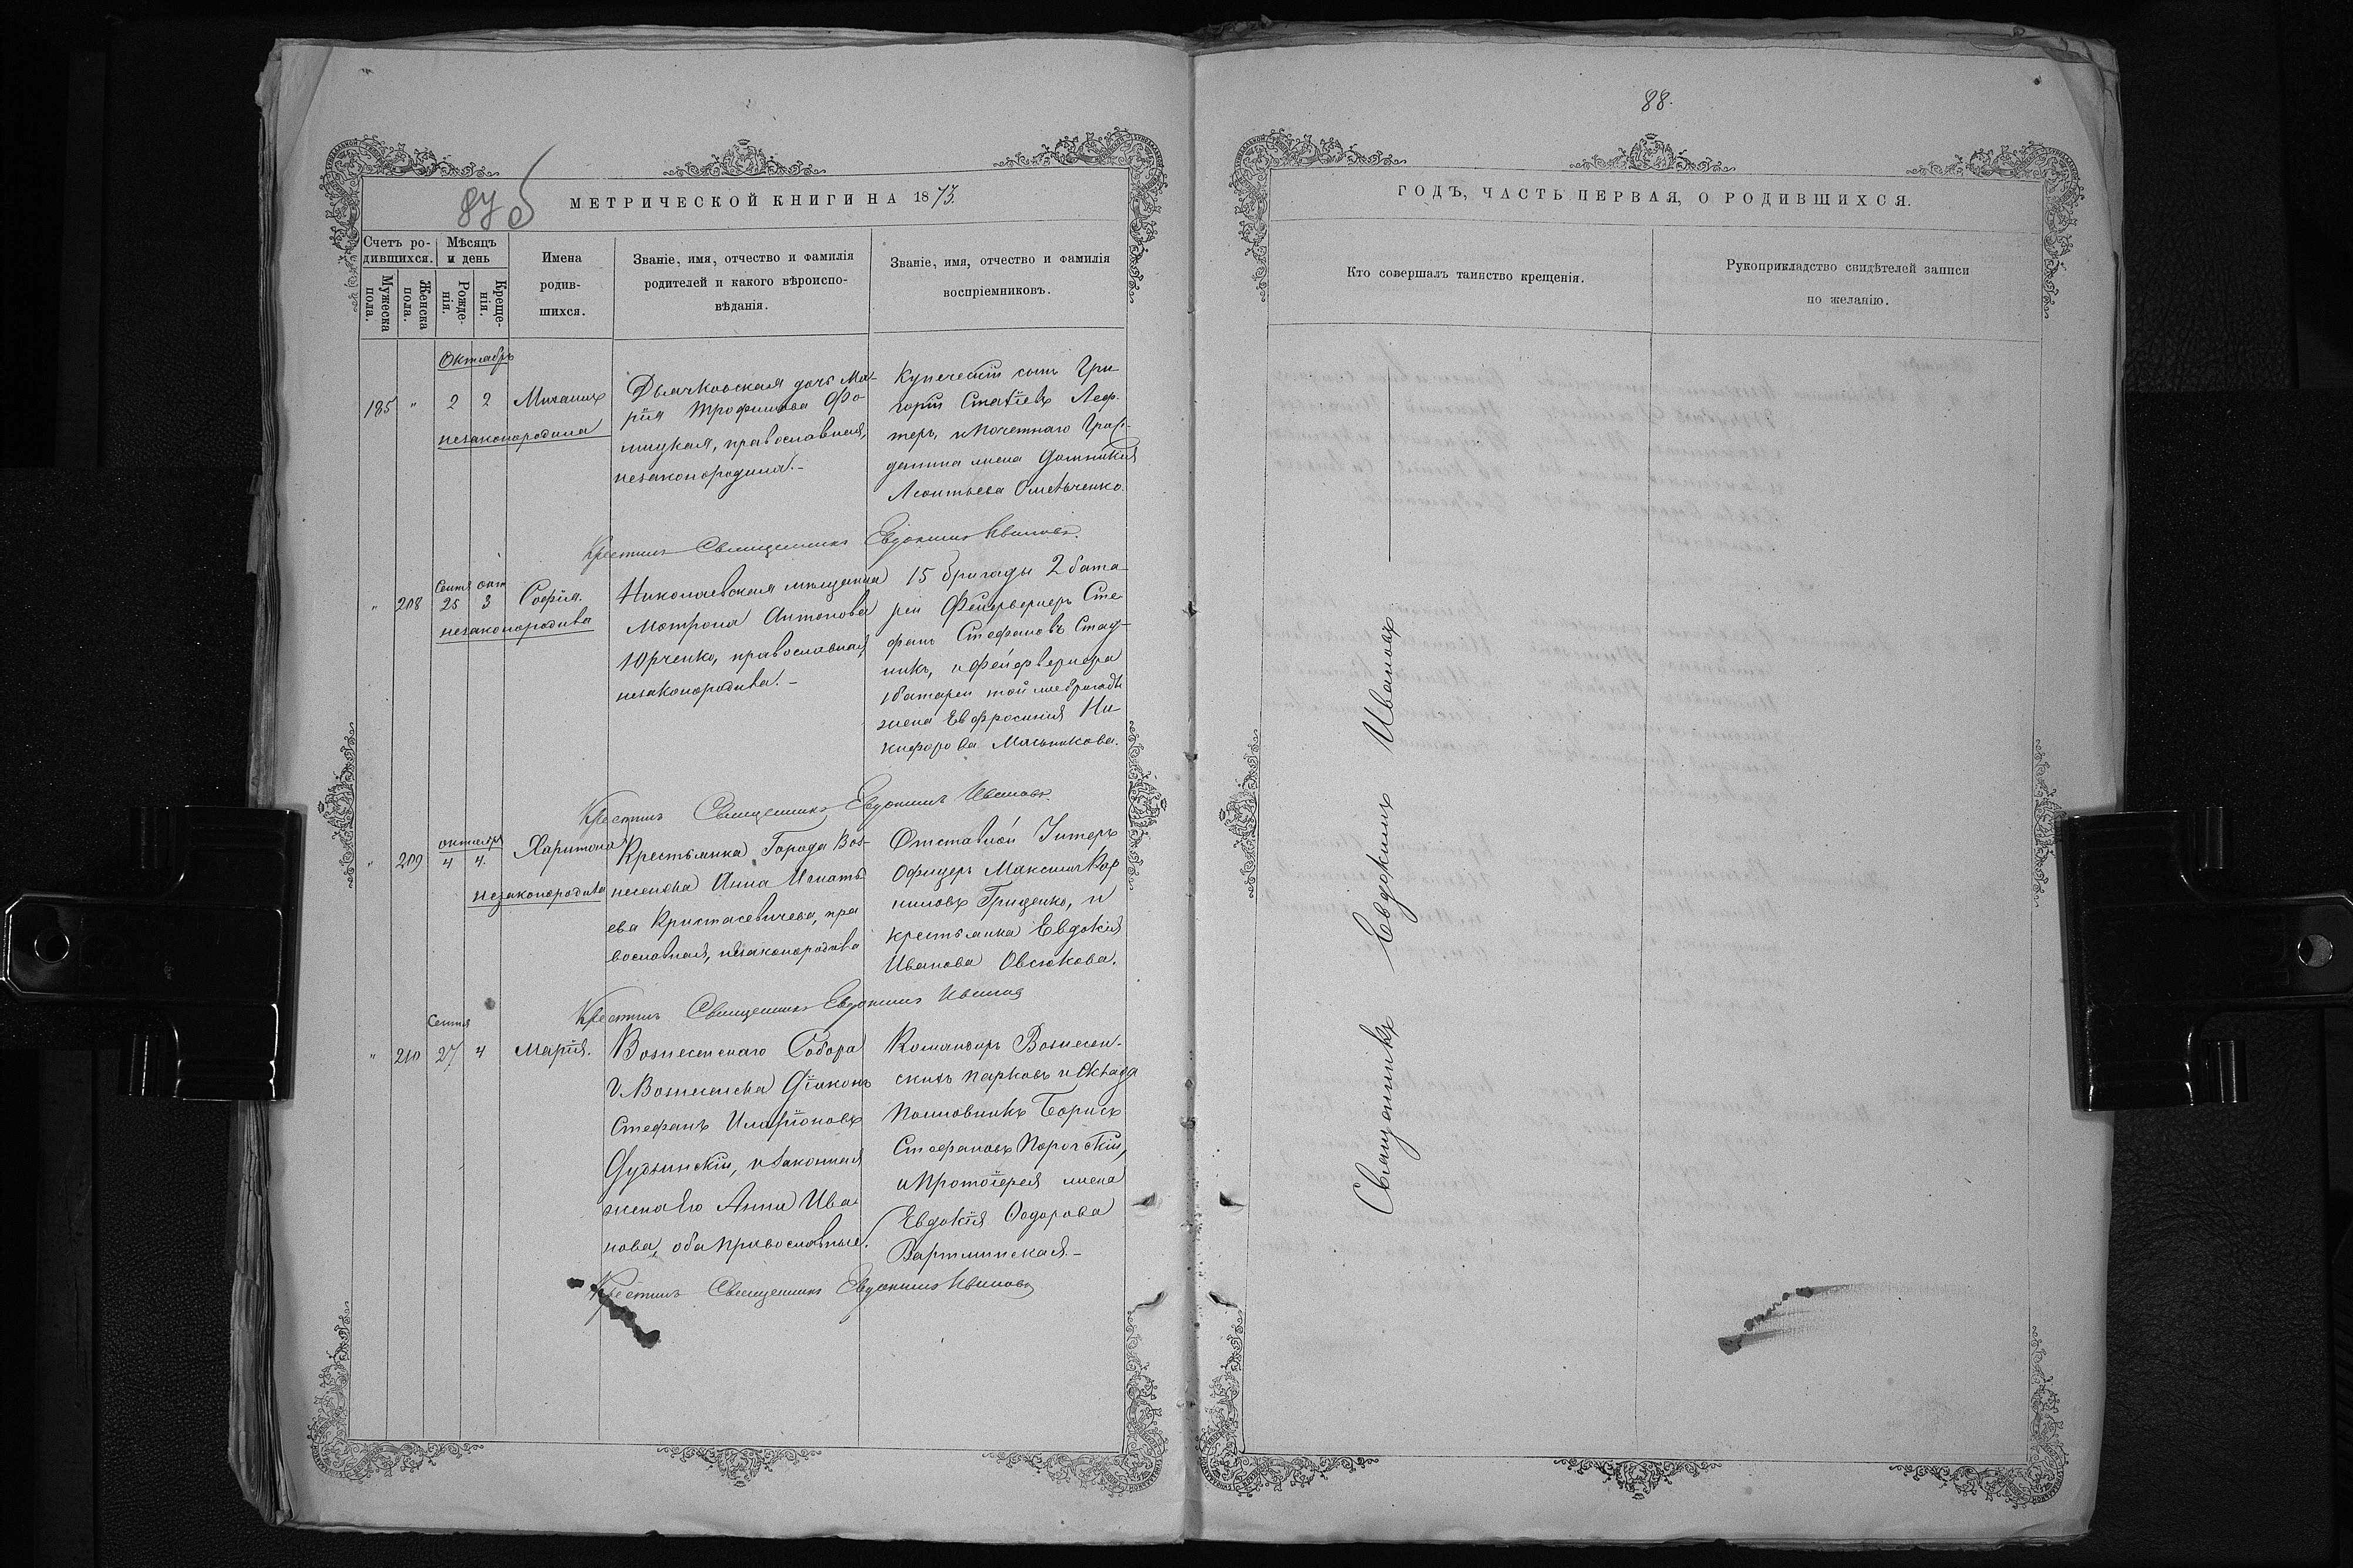 87 об
МЕТРИЧЕСКОЙ КНИГИ НА 1873.
Счетъ родившихся.
Мѣсяцъ и день
Мужеска пола.
Женска пола.
Рожденія.
Крещенія.
Имена родившихся.
Званіе, имя, отчество и фамилія родителей и какого вѣроисповѣданія.
Званіе, имя, отчество и фамилія воспріемниковъ.
Октябрь
185 " 2 2 Михаилъ
незаконородина
Дьячковская дочь Ма-
рія Трофимова Фо-
мицкая, православная,
незаконородина.-
Купеческій сынъ Гри-
горій Статіевъ
теръ, и Почетнаго Граж-
данина жена Домникія
Леонтьева Ометьченко.
Крестилъ Священникъ Евдокимъ Ивановъ.
Сентя окт
" 208 25 3 Софія.
незаконородива
Николаевская мѣщанка
Мотрона Антонова
Юрченко, православная,
незаконородива.-
15 бригады 2 бата-
реи Фейрвернеръ Сте-
фанъ Стефановъ Стад-
никъ, и фейфвернера
1 батареи той же бригады
жена Евфросинія Ни-
кифорова Масникова.
Крестилъ Священникъ Евдокимъ Ивановъ.
октября
" 209 4 4. Харитона
незаконородива
Крестьянка Города Воз-
несенска Анна Игнатьева
Кристасевичева, пра
вославная, незаконородива
Отставной Унтеръ
Офицеръ Максимъ Кор
ниловъ Гриценко, и
крестьянка Евдокія
Иванова Овсюкова.
Крестилъ Священникъ Евдокимъ Ивановъ
Сентя
" 210 27 4 Марія.
Вознесенскаго Собора
г. Вознесенска Діаконъ
Стефанъ Иларіоновъ
Дудзинскій, и законная
жена его Анна Ива-
нова, оба православные.
Командиръ Вознесен-
скихъ парковъ и Склада
Полковникъ Борисъ
Стефановъ Порочскій,
и Протоіерея жена
Евдокія Ѳодорова
Вартминская.-
Крестилъ Священникъ Евдокимъ Ивановъ
88.
ГОДЪ, ЧАСТЬ ПЕРВАЯ, О РОДИВШИХСЯ.
Кто совершалъ таинство крещенія.
Рукоприкладство свидѣтелей записи по желанію.
Священникъ Евдокимъ Ивановъ